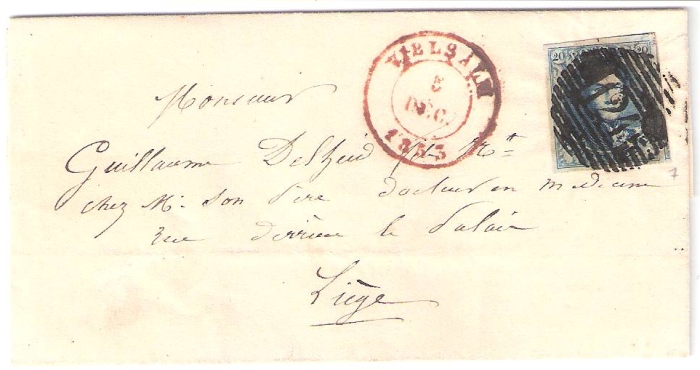 VIELSALM
5
DÉC.
1853
20 20
Monsieur
Guillaume
chez Mr. son Père docteur en medecine
rue derrière le Palais
Liège